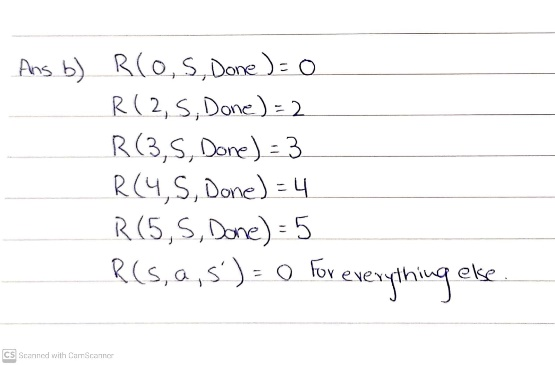 Ans b) R(0, S, Done) = 0
R(2, S, Done) = 2
R(3, S, Done) = 3
R(4, S, Done) = 4
R(5, S, Done) = 5
R(s, a, s') = 0 For everything else.
CS Scanned with CamScanner